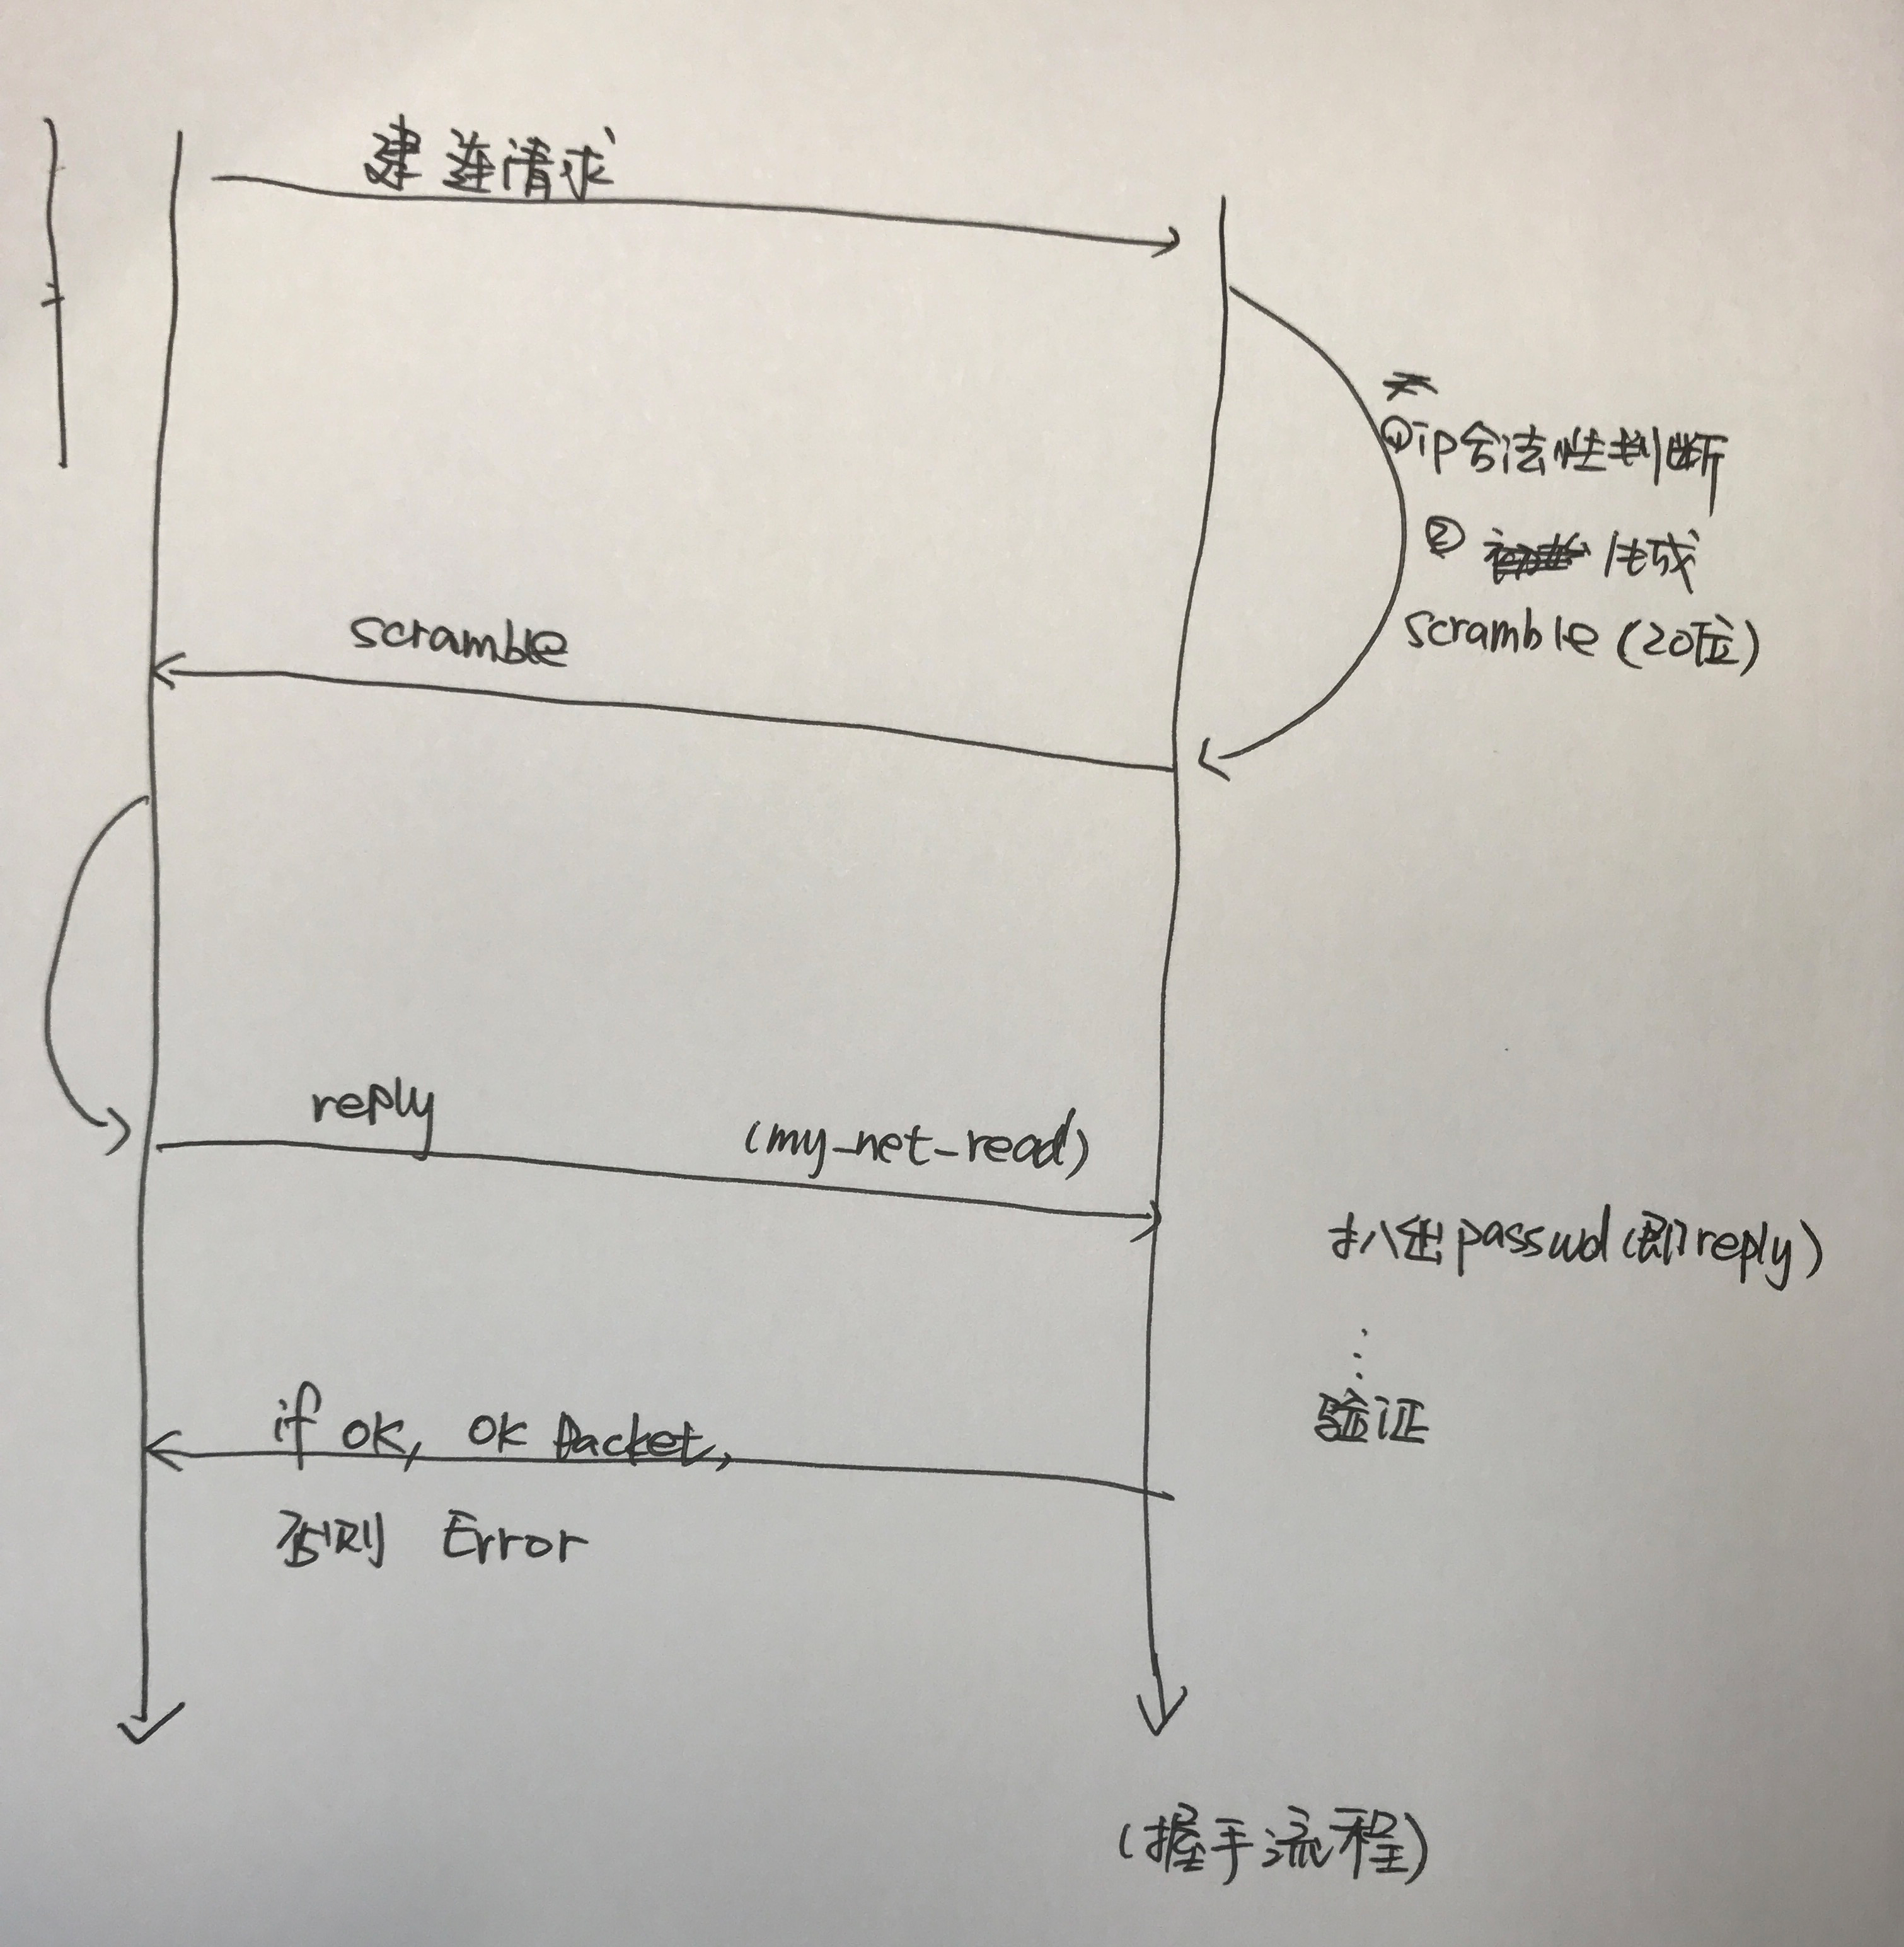 建连请求
①ip合法性判断
② 生成
scramble(20位)
scramble
reply
(my_net_read)
扒出passwd(即reply)
验证
if ok, ok Packet,
否则 Error
(握手流程)